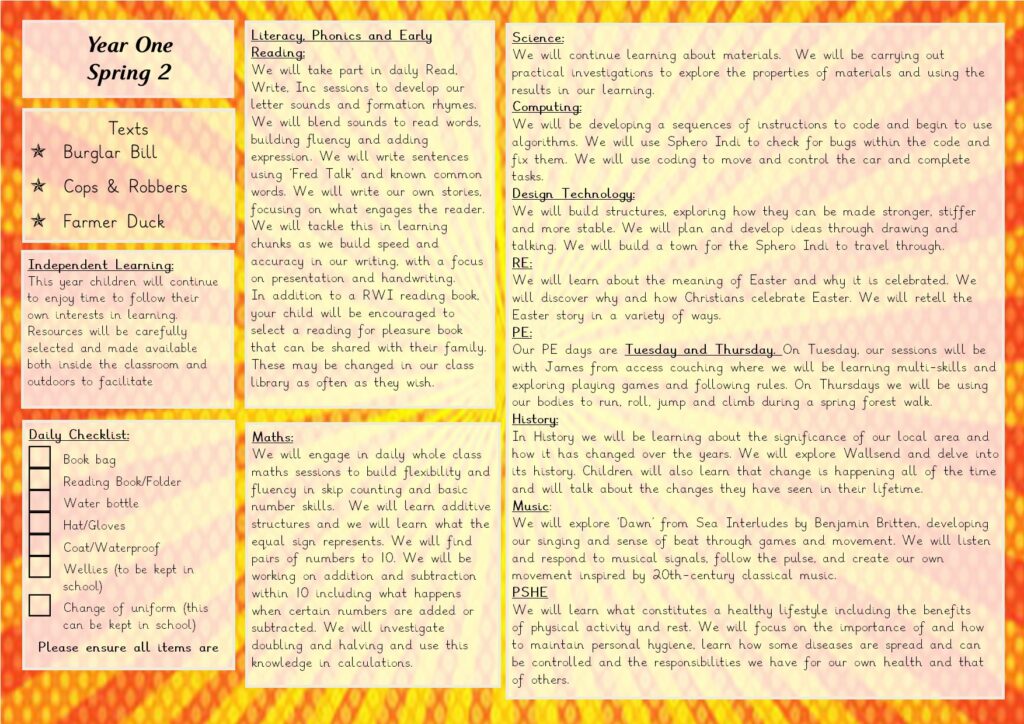 Year One
Spring 2
Texts
Burglar Bill
Cops & Robbers
Farmer Duck
Independent Learning:
This year children will continue
to enjoy time to follow their
own interests in learning.
Resources will be carefully
selected and made available
both inside the classroom and
outdoors to facilitate
Daily Checklist:
Book bag
Reading Book/Folder
Water bottle
Hat/Gloves
Coat/Waterproof
Wellies (to be kept in
school)
Change of uniform (this
can be kept in school)
Please ensure all items are
Literacy, Phonics and Early
Reading:
We will take part in daily Read,
Write, Inc sessions to develop our
letter sounds and formation rhymes.
We will blend sounds to read words,
building fluency and adding
expression. We will write sentences
using 'Fred Talk' and known common
words. We will write our own stories,
focusing on what engages the reader.
We will tackle this in learning
chunks as we build speed and
accuracy in our writing, with a focus
on presentation and handwriting.
In addition to a RWI reading book,
your child will be encouraged to
select a reading for pleasure book
that can be shared with their family.
These may be changed in our class
library as often as they wish.
Maths:
We will engage in daily whole class
maths sessions to build flexibility and
fluency in skip counting and basic
number skills. We will learn additive
structures and we will learn what the
equal sign represents. We will find
pairs of numbers to 10. We will be
working on addition and subtraction
within 10 including what happens
when certain numbers are added or
subtracted. We will investigate
doubling and halving and use this
knowledge in calculations.
Science:
We will continue learning about materials. We will be carrying out
practical investigations to explore the properties of materials and using the
results in our learning.
Computing:
We will be developing a sequences of instructions to code and begin to use
algorithms. We will use Sphero Indi to check for bugs within the code and
fix them. We will use coding to move and control the car and complete
tasks.
Design Technology:
We will build structures, exploring how they can be made stronger, stiffer
and more stable. We will plan and develop ideas through drawing and
talking. We will build a town for the Sphero Indi to travel through.
RE:
We will learn about the meaning of Easter and why it is celebrated. We
will discover why and how Christians celebrate Easter. We will retell the
Easter story in a variety of ways.
PE:
Our PE days are Tuesday and Thursday. On Tuesday, our sessions will be
with James from access couching where we will be learning multi-skills and
exploring playing games and following rules. On Thursdays we will be using
our bodies to run, roll, jump and climb during a spring forest walk.
History:
In History we will be learning about the significance of our local area and
how it has changed over the years. We will explore Wallsend and delve into
its history. Children will also learn that change is happening all of the time
and will talk about the changes they have seen in their lifetime.
Music:
We will explore 'Dawn' from Sea Interludes by Benjamin Britten, developing
our singing and sense of beat through games and movement. We will listen
and respond to musical signals, follow the pulse, and create our own
movement inspired by 20th-century classical music.
PSHE
We will learn what constitutes a healthy lifestyle including the benefits
of physical activity and rest. We will focus on the importance of and how
to maintain personal hygiene, learn how some diseases are spread and can
be controlled and the responsibilities we have for our own health and that
of others.